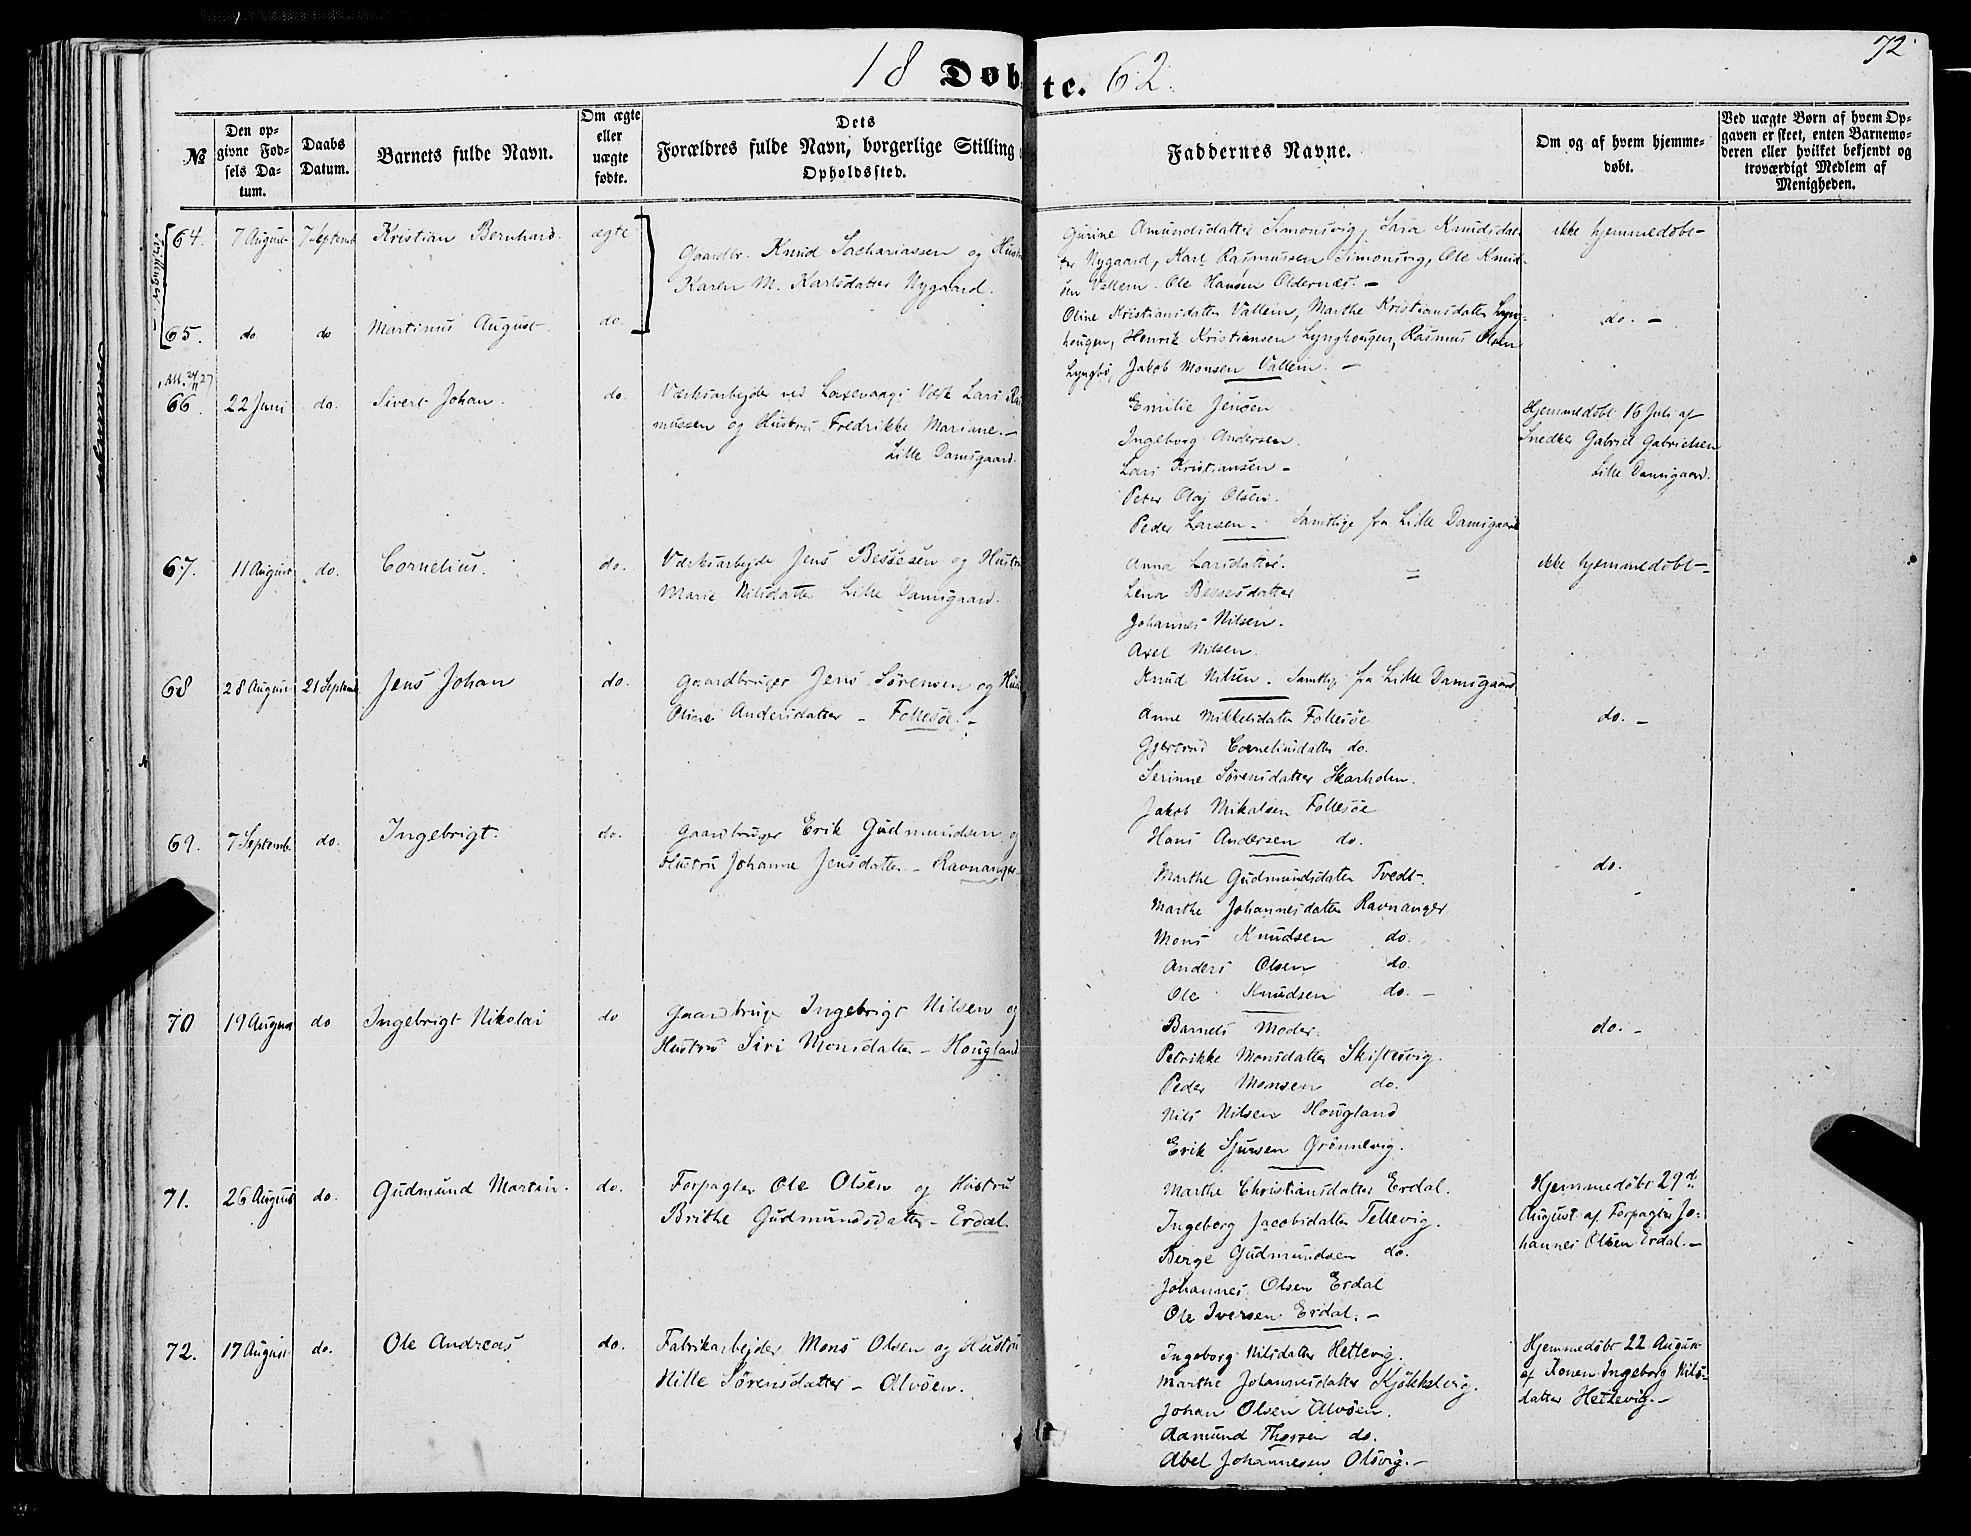 18 Døbte. 62.
72
№
Den op-
givne Fød-
sels Da-
tum.
Daabs
Datum.
Barnets fulde Navn.
Om ægte
eller
uægte
fødte.
Dets
Forældres fulde Navn, borgerlige Stilling
Opholdssted.
Faddernes Navne.
Om og af hvem hjemme-
døbt.
Ved uægte Børn af hvem Op-
gaven er skeet, enten Barnemo-
deren eller hvilket bekjendt og
troværdigt Medlem af
Menigheden.
Tvillinger
64. 7 August 7 Septemb Kristian Bernhard. ægte
Gaardbr. Knud Sachariassen og Hustru
Karen M. Karlsdatter Nygaard.
Gurine Amundsdatter Simonsvig, Sara Knudsdat-
ter Nygaard, Karl Rasmussen Simonsvig, Ole Knud-
sen Vallem. Ole Hansen Oldernæs. –
ikke hjemmedøbt –
65. do do Martinus August. do.
Oline Kristiansdatter Vallem, Marthe Kristiansdatter Lyng-
hougen, Henrik Kristiansen Lynghougen, Rasmus Olsen
Lyngbø, Jakob Monsen Vallem. –
do. –
66. 22 Juni do. Sivert Johan. do.
Værksarbejder ved Laxevaags Værk Lars Ras
mussen og Hustru Fredrikke Mariane. –
Lille Damsgaard.
Emilie Jensen
Ingeborg Andersen.
Lars Kristiansen –
Peter Olaj Olsen.
Peder Larsen. Samtlige fra Lille Damsgaard
Hjemmedøbt 16 Juli af
Snedker Gabriel Gabrielsen
Lille Damsgaard.
67. 11 August do. Cornelius. do.
Værksarbejde Jens Bessesen og Hustru
Marie Nilsdatter Lille Damsgaard.
Anna Larsdatter.
Lena Bessesdatter
Johannes Nilsen.
Axel Nilsen.
Knud Nilsen. Samtlige fra Lille Damsgaard
ikke hjemmedøbt –
68 28 August 21 Septemb. Jens Johan do.
Gaardbruger Jens Sørensen og Hust
Oline Andersdatter – Follesøe. –
Anne Mikkelsdatter Follesøe
Gjertrud Corneliusdatter do.
Serinne Sørensdatter Skarholm.
Jakob Mikalsen Follesøe
Hans Andersen do.
do. –
69. 7 Septemb. do. Ingebrigt. do.
Gaardbruger Erik Gudmundsen og
Hustru Johanne Jensdatter. – Ravnanger
Marthe Gudmundsdatter Tvedt.
Marthe Johannesdatter Ravnanger
Mons Knudsen do.
Anders Olsen do
Ole Knudsen do. –
do.
70 19 August do Ingebrigt Nikolai do
Gaardbruger Ingebrigt Nilsen og
Hustru Siri Monsdatter – Hougland
Barnets Moder.
Petrikke Monsdatter Skiftesvig.
Peder Monsen do.
Nils Nilsen Hougland
Erik Sjursen Grønnevig.
do. –
71. 26 August do. Gudmund Martin. do.
Forpagter Ole Olsen og Hustru
Brithe Gudmundsdatter – Erdal.
Marthe Christiansdatter Erdal.
Ingeborg Jacobsdatter Tellevig.
Berge Gudmundsen do.
Johannes Olsen Erdal
Ole Iversen Erdal. –
Hjemmedøbt 29de
August af Forpagter Jo-
hannes Olsen Erdal. –
72. 17 August do. Ole Andreas do.
Fabrikarbejder Mons Olsen og Hustru
Nille Sørensdatter – Alvøen.
Ingeborg Nilsdatter Hettevig.
Marthe Johannesdatter Kjøkkelvig.
Johan Olsen Alvøen.
Aamund Thorsen do.
Abel Johannesen Olsvig. –
Hjemmedøbt 22 August
af Konen Ingeborg Nils-
datter Hettevig. –